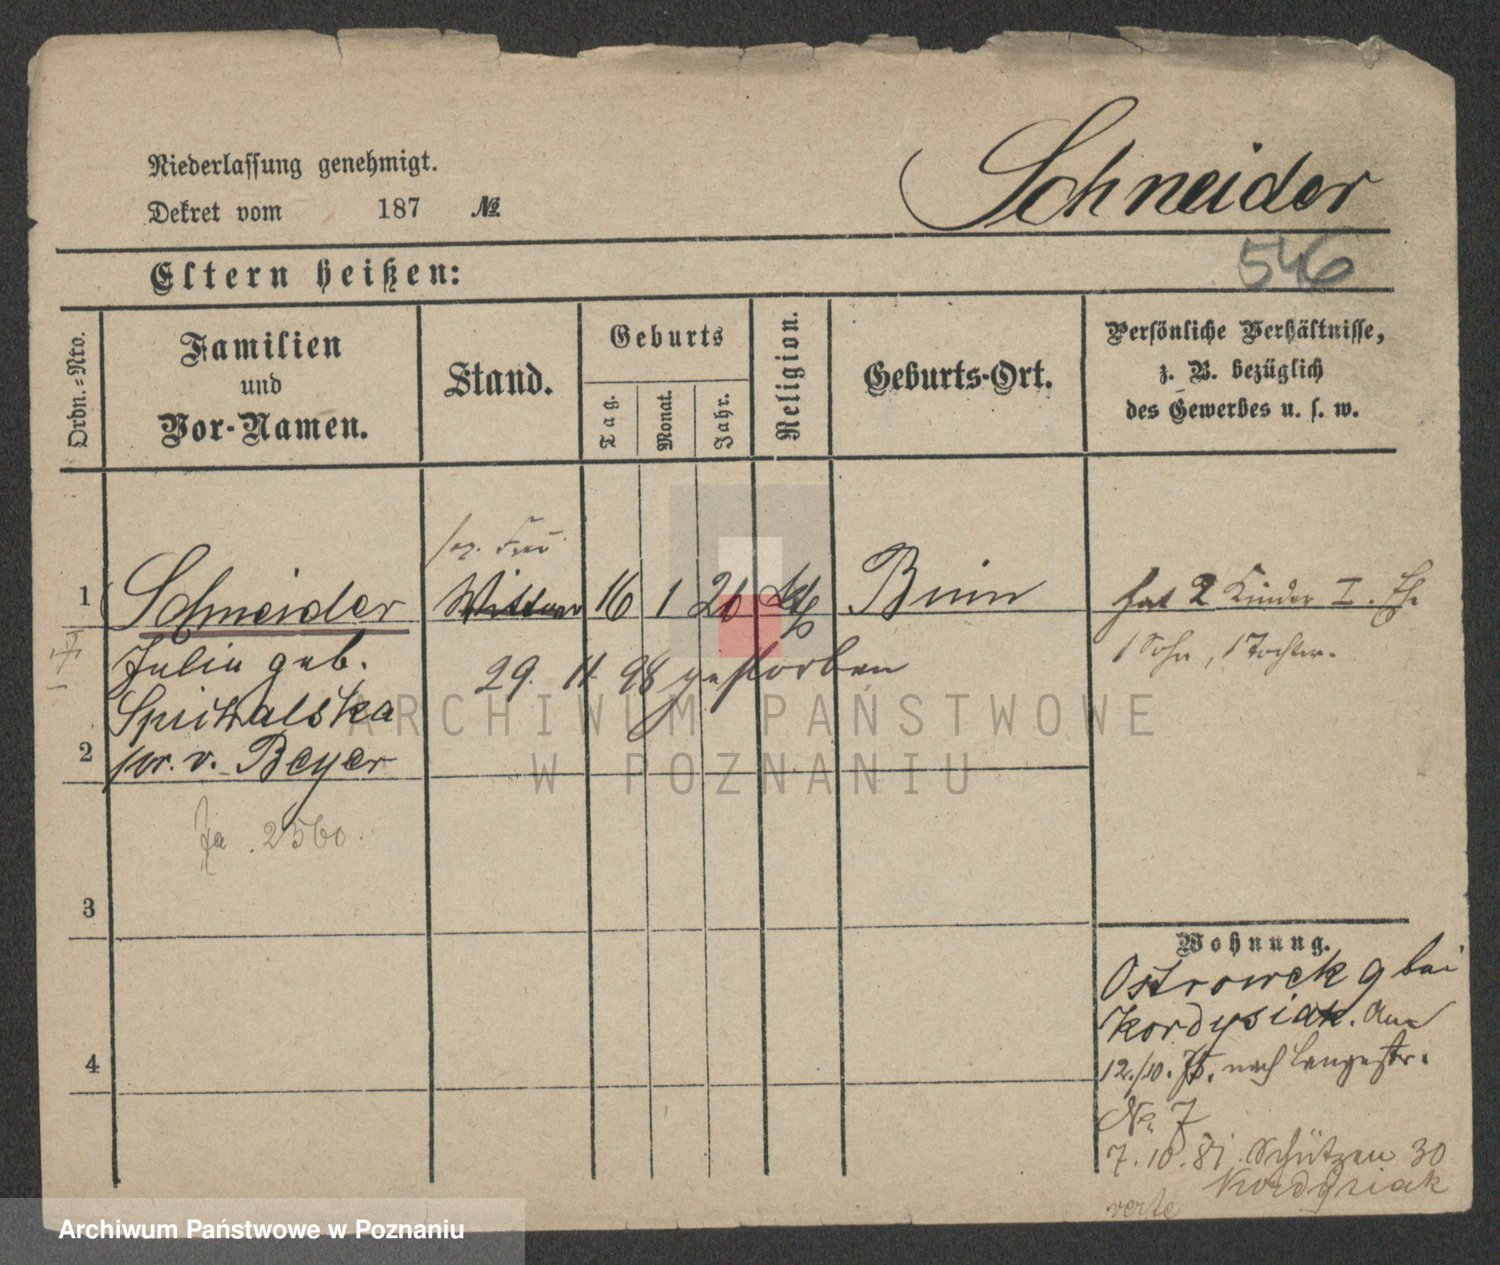 Niederlassung genehmigt.
Dekret vom 187 №
Schneider
546
Eltern heißen:
Ordn.=Nro.
Familien
und
Vor-Namen.
Stand.
Geburts
Tag.
Monat.
Jahr.
Religion.
Geburts-Ort.
Persönliche Verhältnisse,
z. B. bezüglich
des Gewerbes u. s. w.
1 Schneider Wittwe 16 1 26 kth Bnin hat 2 Kinder I. Ehe
1 Sohn, 1 Tochter.
Julie geb.
29. 11. 98 gestorben
2 vor. v. Beyer
Ja 2560.
3
4
Wohnung.
Ostrowek 9 bei
Kordysiak.
12./10. 75. nach Langestr.
No. 7
7. 10. 81. Schützen 30
Kordysiak
verte
ARCHIWUM PAŃSTWOWE
W POZNANIU
Archiwum Państwowe w Poznaniu